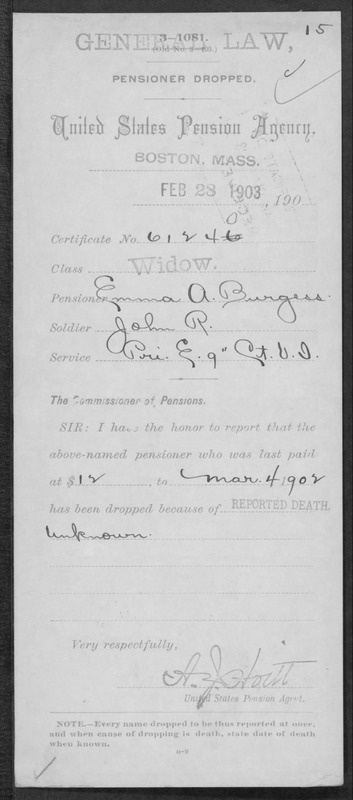 15
GENERAL LAW,
3—1081.
PENSIONER DROPPED.
United States Pension Agency,
BOSTON, MASS.
FEB 28 1903, 190
Certificate No. 61240
Class Widow.
Pensioner Emma A. Burgess.
Soldier John R.
Service Pri. E. 9" Ct. V. I.
The Commissioner of Pensions.
SIR: I have the honor to report that the
above-named pensioner who was last paid
at $12, to Mar. 4, 1902
has been dropped because of REPORTED DEATH.
Unknown.
Very respectfully,
United States Pension Agent.
NOTE.—Every name dropped to be thus reported at once,
and when cause of dropping is death, state date of death
when known.